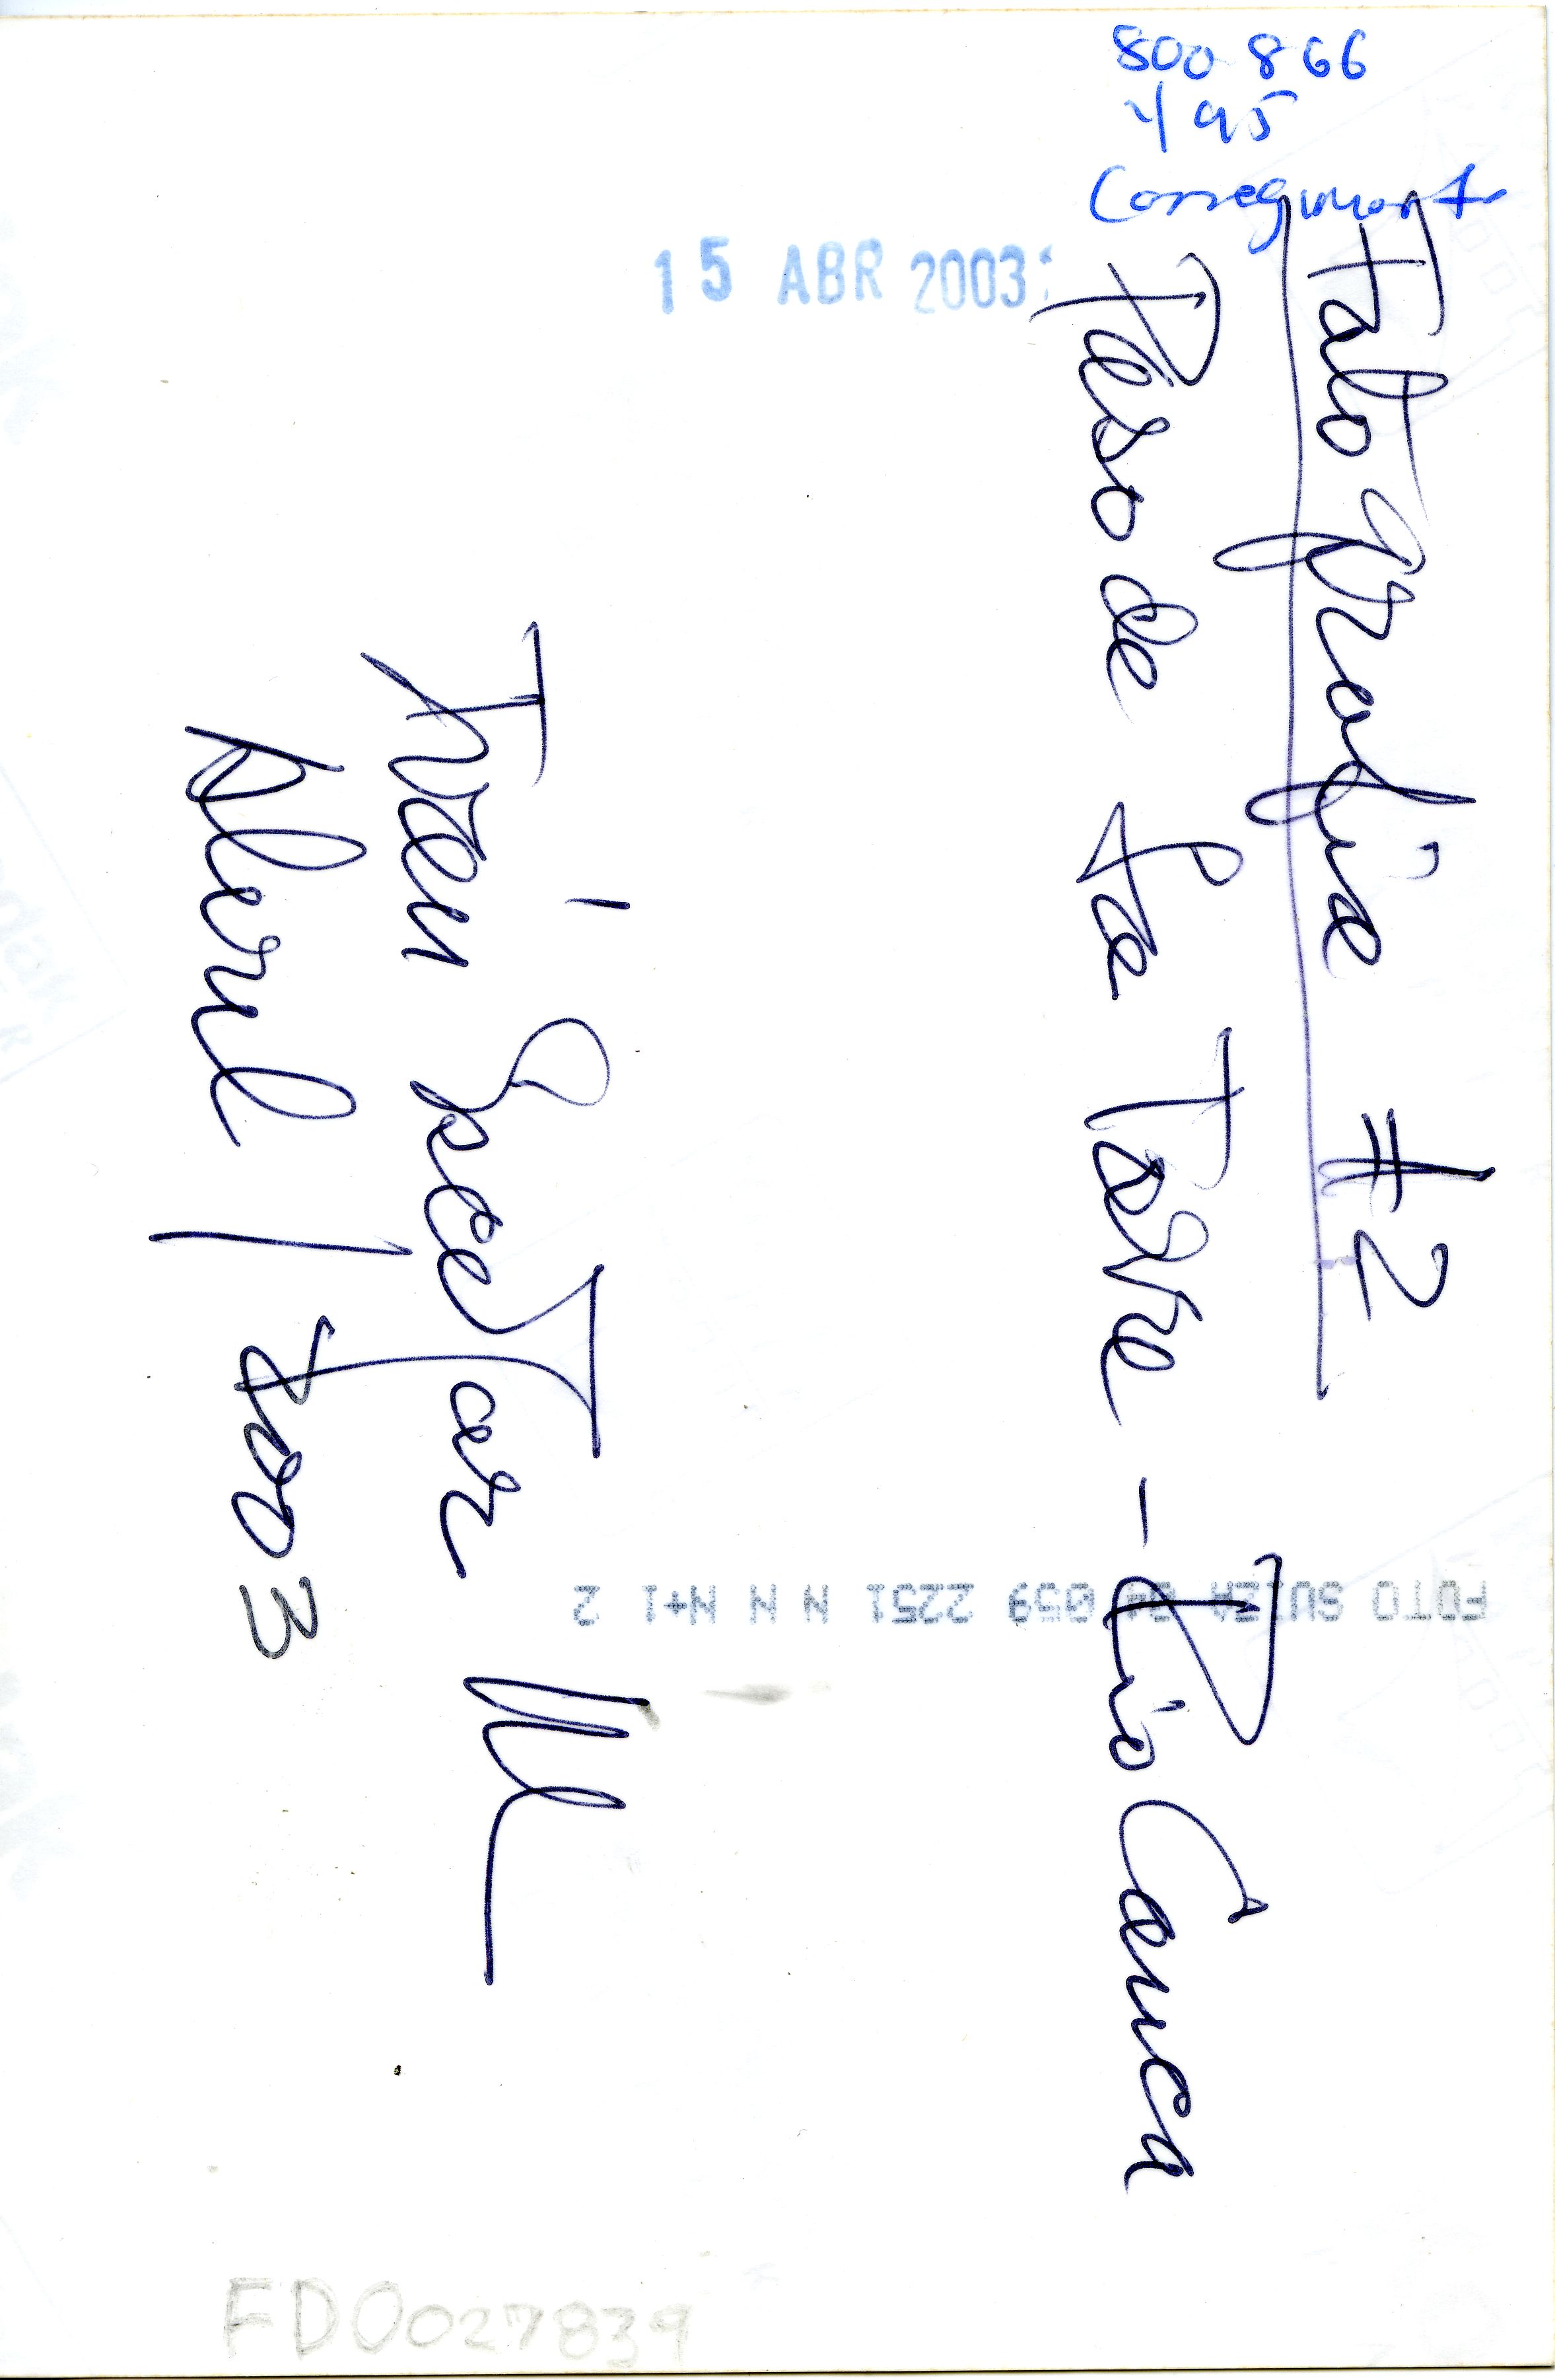 800 866
495
Corregimiento
15 ABR 2003
Fotografía #2
Paso de La Torre - Río Cauca
Iván Escobar M
Abril / 2003
FOTO SUIZA 04 059 2251 N N N N+1 2
FD0027839